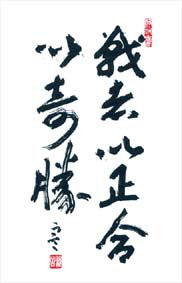 戰者以正合
以奇勝